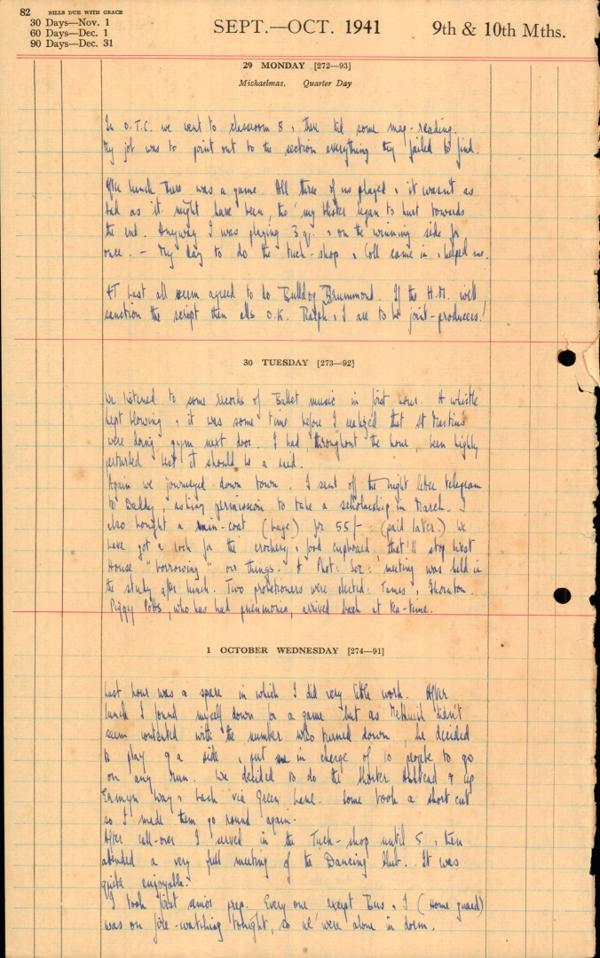 82 BILLS DUE WITH GRACE
30 Days—Nov. 1
60 Days—Dec. 1
90 Days—Dec. 31
SEPT.—OCT. 1941
9th & 10th Mths.
29 MONDAY [272—93]
Michaelmas. Quarter Day
In O.T.C. we went to classroom 8, there did some map-reading.
My job was to point out to the section everything they failed to find.
After lunch there was a game. All three of us played, it wasn't as
bad as it might have been, tho' my blister began to hurt towards
the end. Anyway I was playing 3 q. & on the winning side for
once. — My day to do the tuck-shop, Coll came in & helped me.
AT Last all seem agreed to do Bulldog Drummond. If the H.M. will
sanction the script then all's O.K. Ralph & I are to be joint-producers!
30 TUESDAY [273—92]
We listened to some records of Ballet music in first hour. A whistle
kept blowing & it was some time before I realized that St Martins
were doing gym next door. I had, throughout the hour, been highly
perturbed lest it should be a raid.
Again we journeyed down town. I sent off the night letter telegram
to Daddy, asking permission to take a scholarship in March. I
also bought a rain-coat (huge) for 55/- (paid later.) We
have got a lock for the crockery & food cupboard, that'll stop West
House "borrowing" our things. A Phot: Soc: meeting was held in
the study after lunch. Two probationers were elected: James & Thornton.
Piggy Potts, who has had pneumonia, arrived back at tea-time.
1 OCTOBER WEDNESDAY [274—91]
Last hour was a spare in which I did very little work. After
lunch I found myself down for a game but as hadn't
seem contented with the number who turned down, he decided
to play 9 a side & put me in charge of 10 people to go
on any run. We decided to do the Shorter Ashtead & up
Ermyn way & back via Green Lane. Some took a short cut
so I made them go round again.
After call-over I served in the Tuck-shop until 5, then
attended a very full meeting of the Dancing Club. It was
quite enjoyable.
I took first senior prep. Every one except & I (Home guard)
was on fire-watching tonight, so we were alone in dorm.